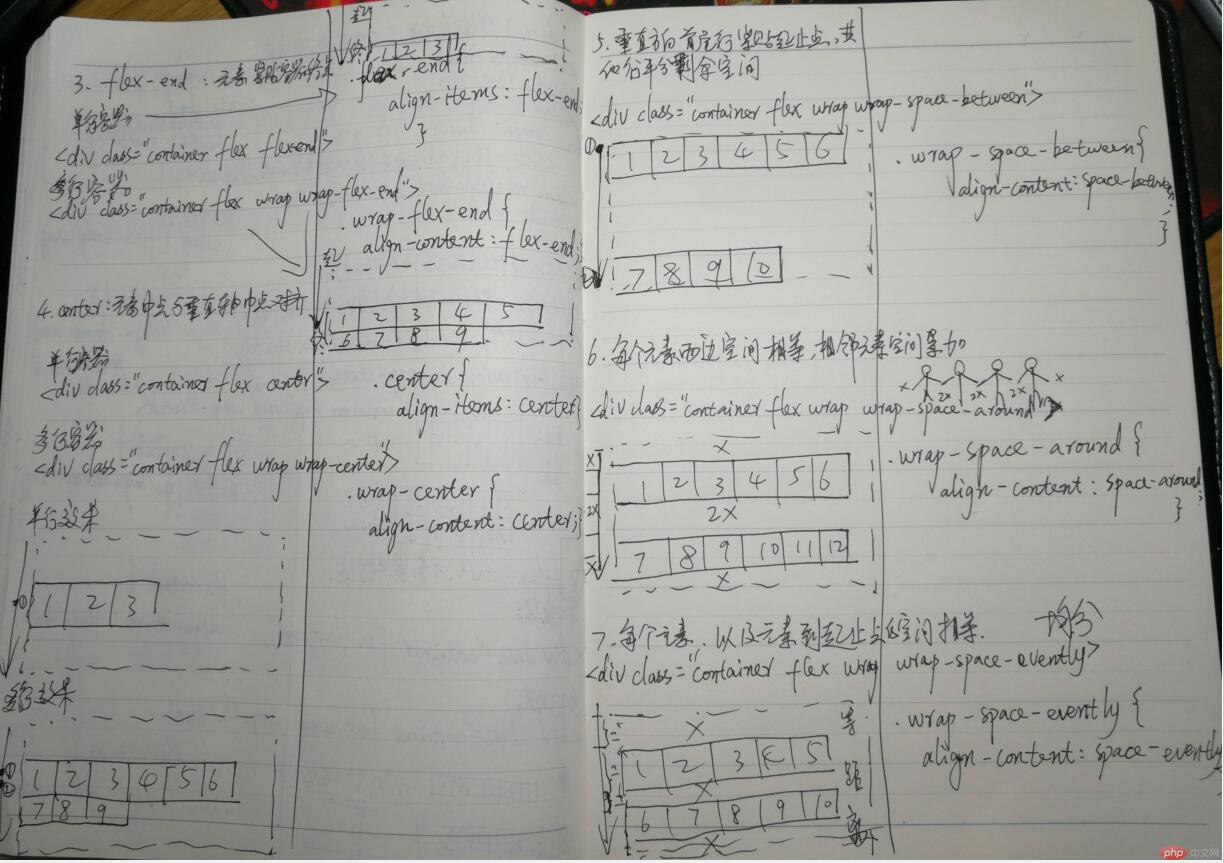 起
终
1 2 3
3. flex-end : 元素紧贴容器终点
.flex-end {
align-items : flex-end;
}
单行容器
<div class="container flex flex-end">
多行容器
<div class="container flex wrap wrap-flex-end">
.wrap-flex-end {
align-content : flex-end;
}
起
1 2 3 4 5
6 7 8 9
4. center : 元素中点与垂直轴中点对齐
单行容器
<div class="container flex center">
.center {
align-items : center;
}
多行容器
<div class="container flex wrap wrap-center">
.wrap-center {
align-content : center;
}
单行效果
1 2 3
多行效果
①
②
1 2 3 4 5 6
7 8 9
5. 垂直方向首尾行紧贴起止点, 其
他行平分剩余空间
<div class="container flex wrap wrap-space-between">
①
1 2 3 4 5 6
.wrap-space-between {
align-content : space-between;
}
②
7 8 9 10
6. 每个元素两边空间相等, 相邻元素空间累加
x 2x 2x x
<div class="container flex wrap wrap-space-around">
x
x
1 2 3 4 5 6
2x
2x
7 8 9 10 11 12
x
x
.wrap-space-around {
align-content : space-around;
}
7. 每个元素, 以及元素到起止点的空间相等. 均分
<div class="container flex wrap wrap-space-evently">
x
1 2 3 4 5
x
6 7 8 9 10
x
等
距
离
.wrap-space-evently {
align-content : space-evently
php 中文网